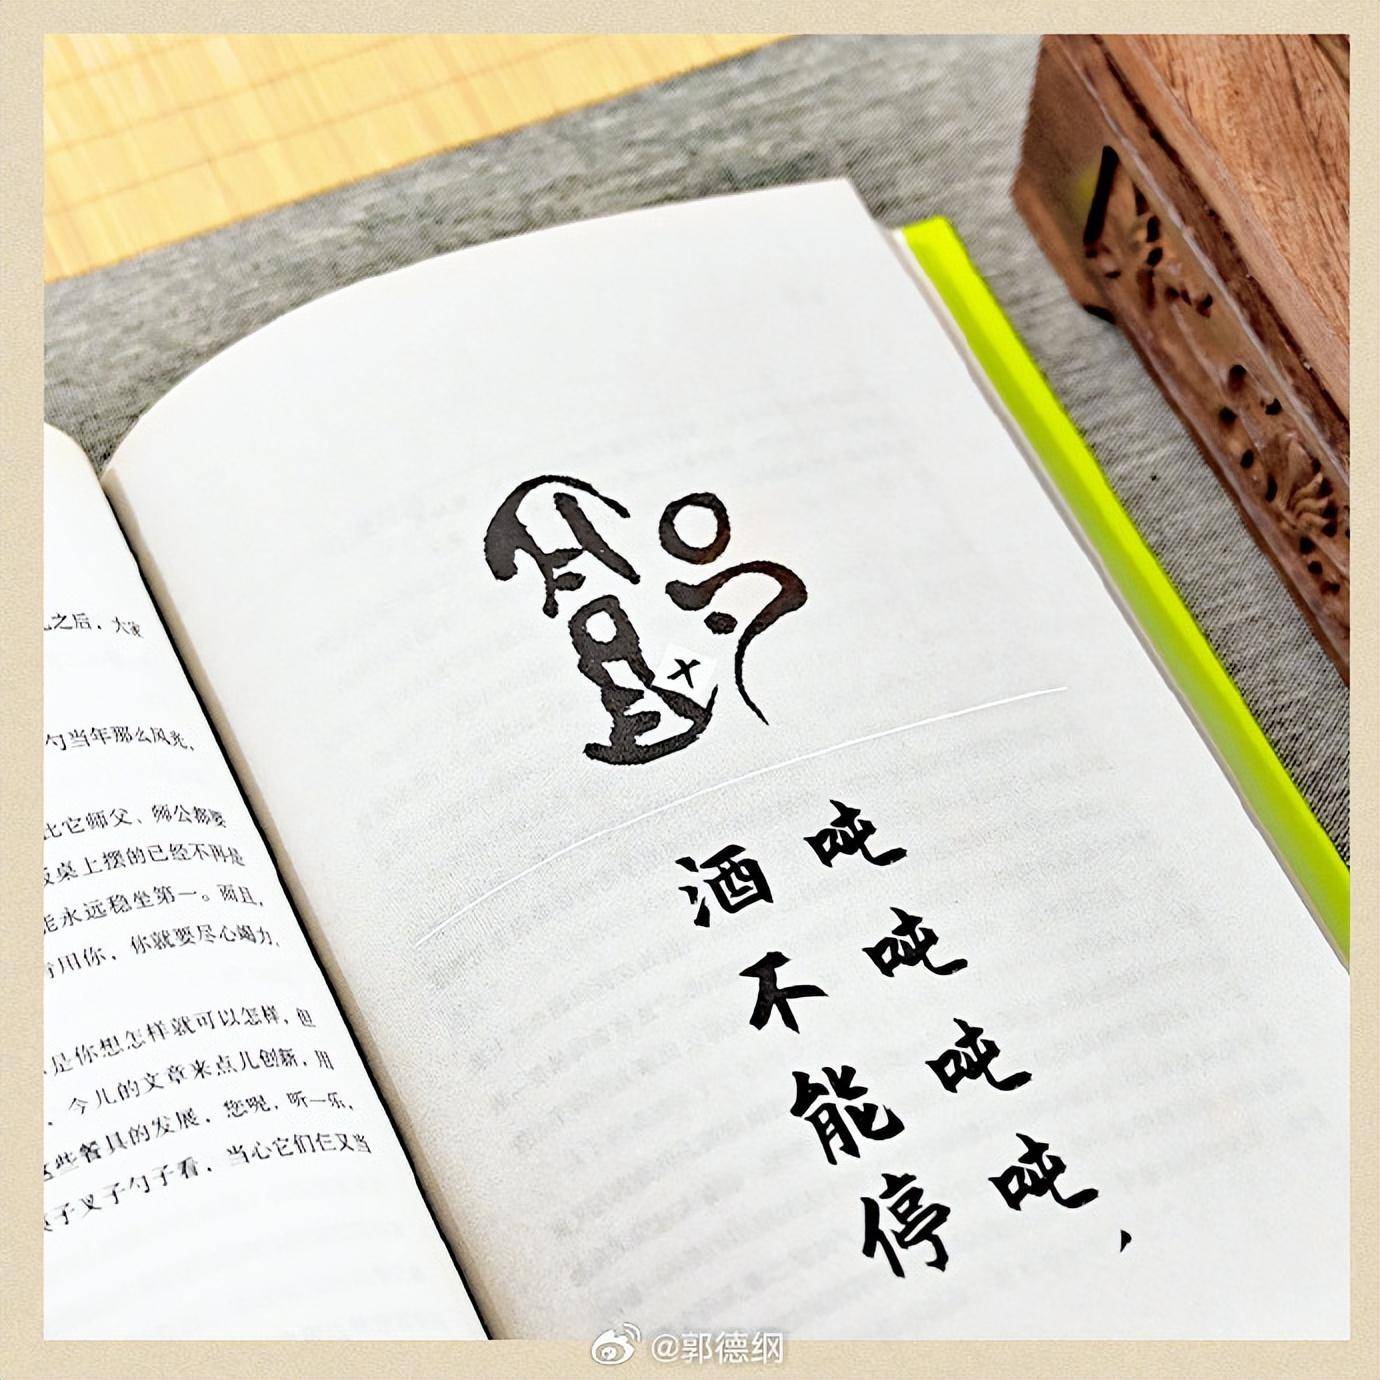 之后，大家
勺当年那么风光，
比它师父、师公都要
饭桌上摆的已经不再是
能永远稳坐第一。而且，
肯用你，你就要尽心竭力，
是你想怎样就可以怎样，但
，今儿的文章来点儿创新，用
这些餐具的发展，您呢，听一乐，
子叉子勺子看，当心它们仨又当
吨吨吨吨，
酒不能停
@郭德纲